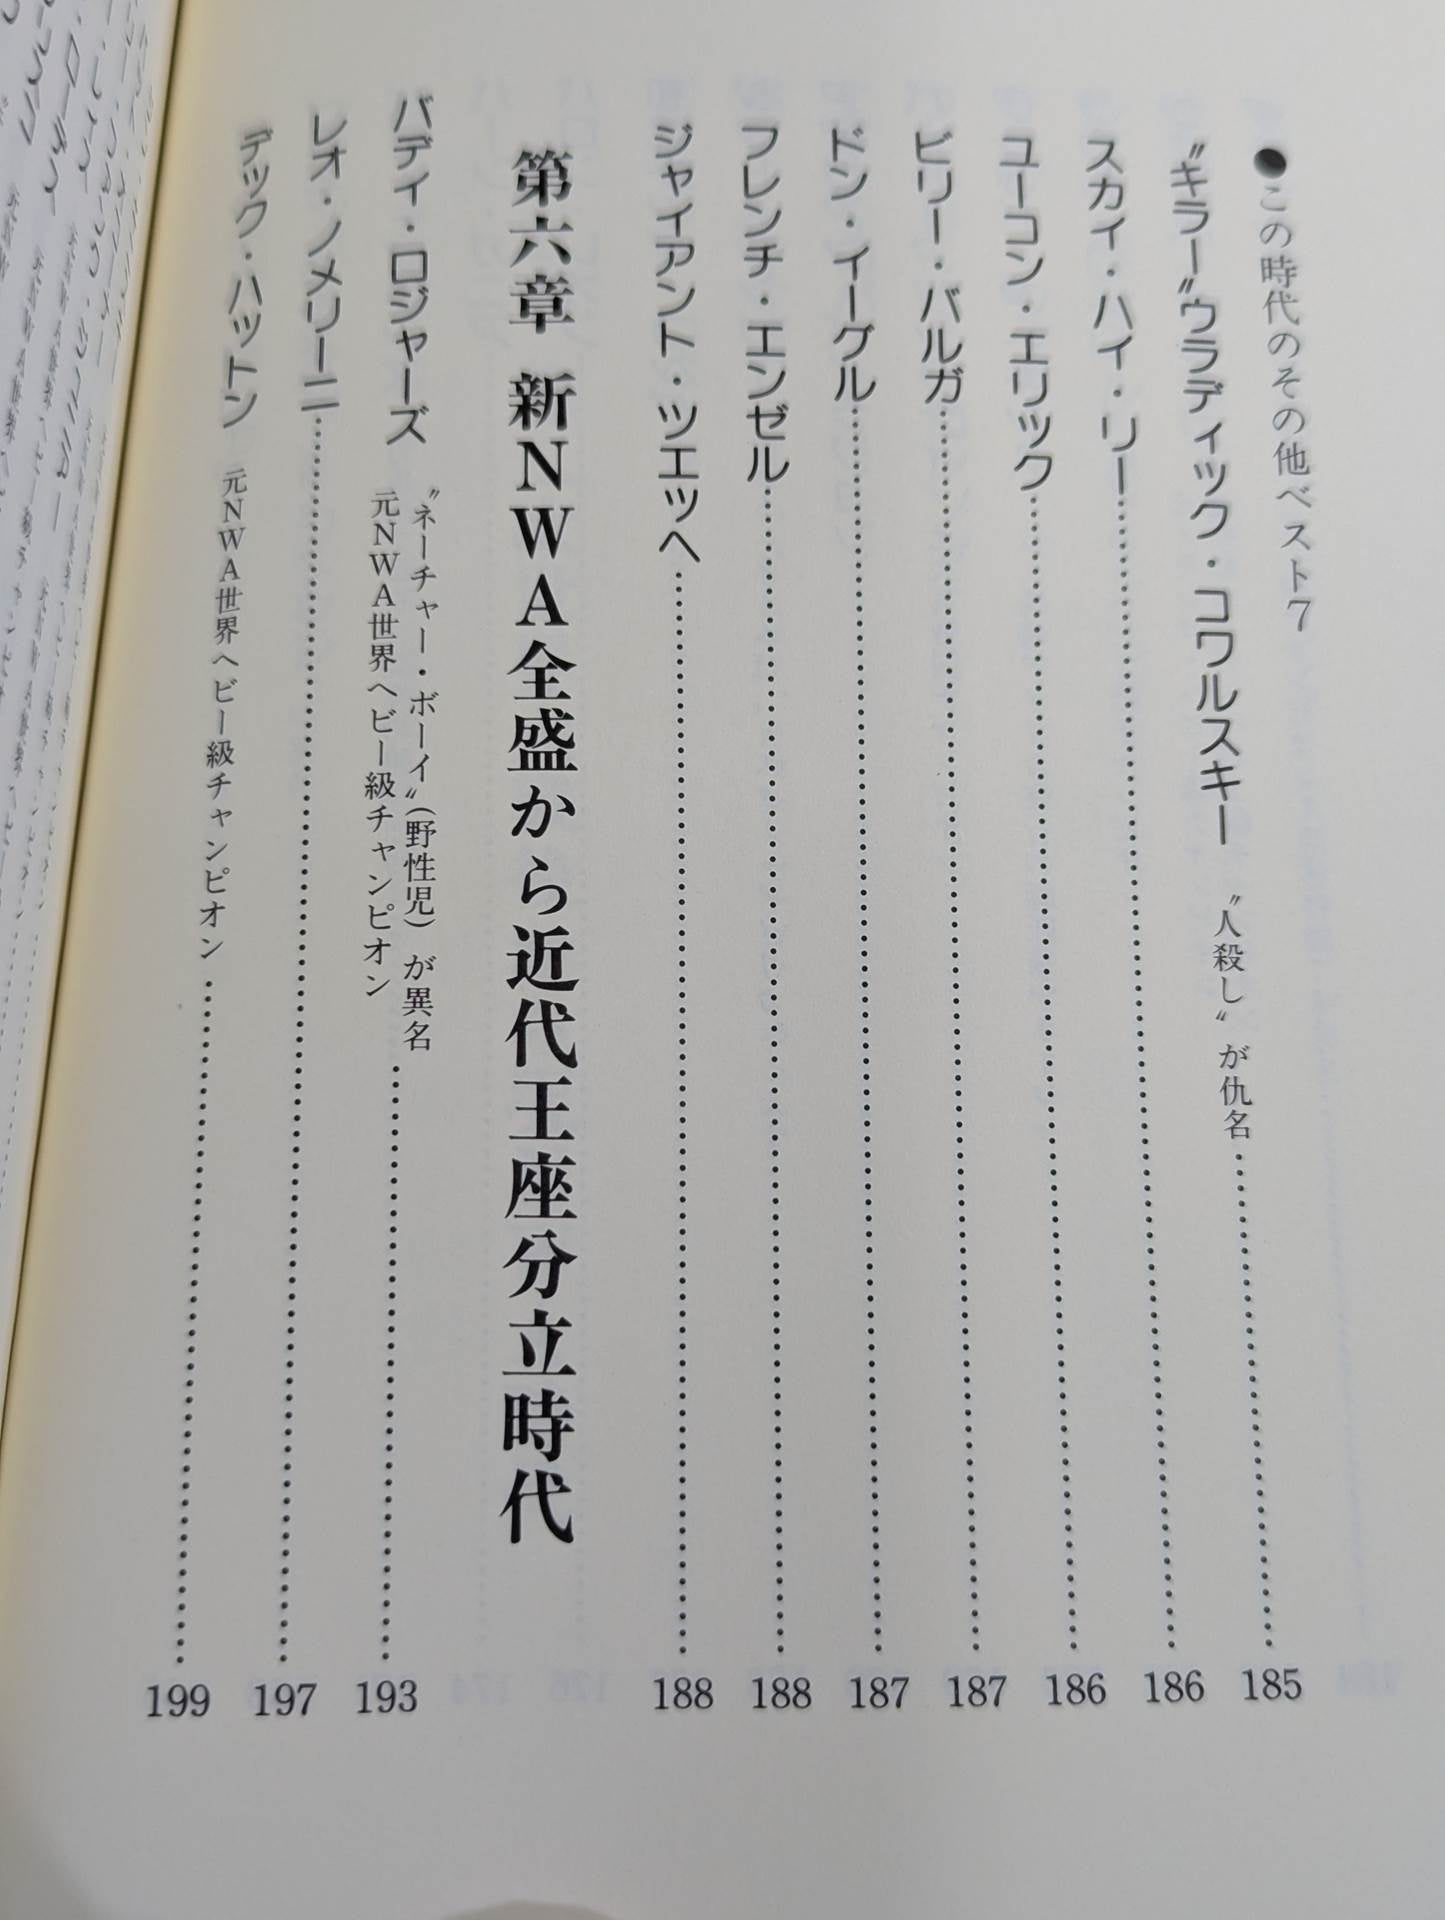 ●この時代のその他ベスト7
〝キラー〟ウラディック・コワルスキー 〝人殺し〟が仇名……185
スカイ・ハイ・リー……186
ユーコン・エリック……186
ビリー・バルガ……187
ドン・イーグル……187
フレンチ・エンゼル……188
ジャイアント・ツエッヘ……188
第六章 新NWA全盛から近代王座分立時代
バディ・ロジャーズ 〝ネーチャー・ボーイ〟(野性児)が異名
元NWA世界ヘビー級チャンピオン……193
レオ・ノメリーニ……197
デック・ハットン 元NWA世界ヘビー級チャンピオン……199